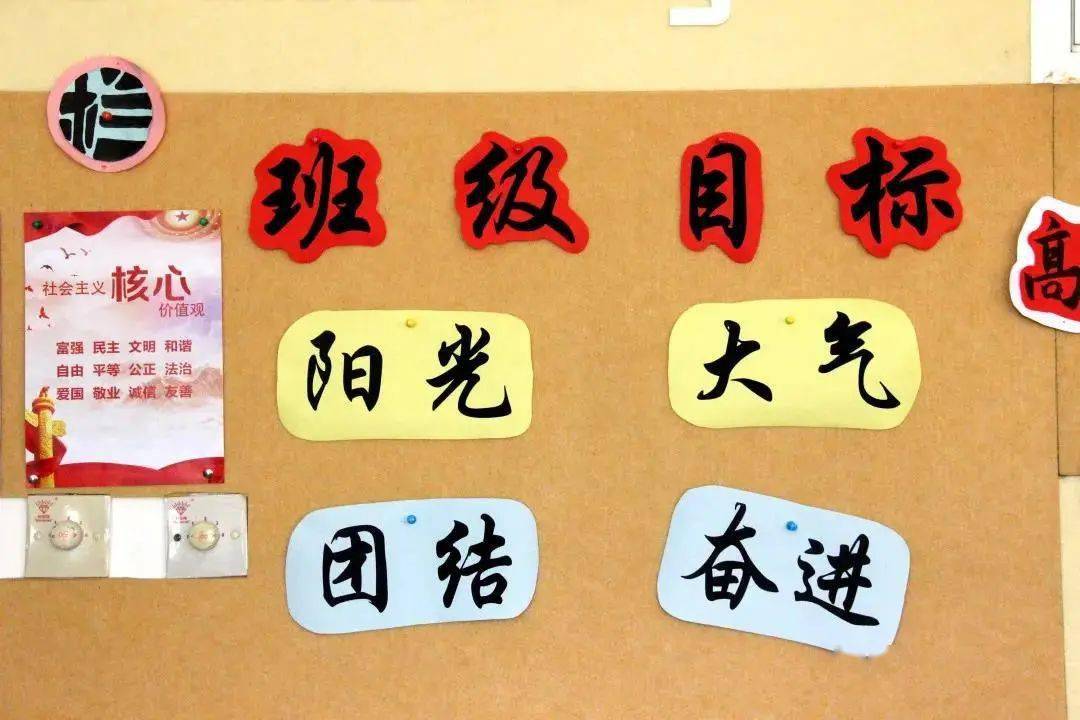 栏
班级目标
高
社会主义 核心
价值观
富强 民主 文明 和谐
自由 平等 公正 法治
爱国 敬业 诚信 友善
阳光
大气
团结
奋进